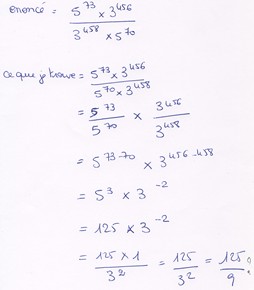 enoncé = 5^73 × 3^456 / 3^458 × 5^70
ce que je trouve = 5^73 × 3^456 / 5^70 × 3^458
= 5^73 / 5^70 × 3^456 / 3^458
= 5^73-70 × 3^456-458
= 5^3 × 3^-2
= 125 × 3^-2
= 125 × 1 / 3^2 = 125 / 3^2 = 125 / 9 ?